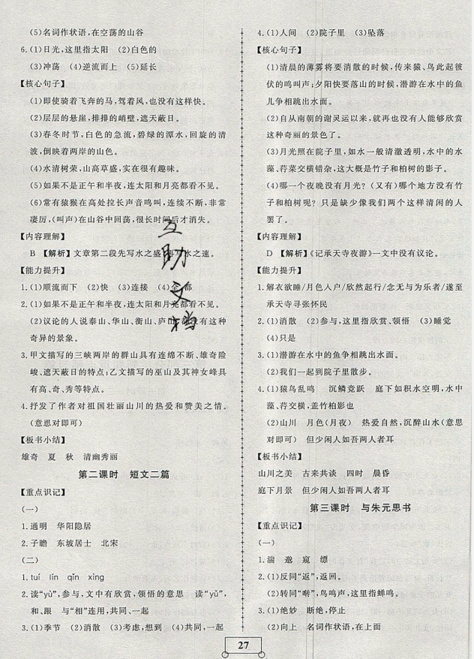 (5)名词作状语,在空荡的山谷
6.(1)日光,这里指太阳 (2)白色的
(3)冲荡 (4)逆流而上 (5)延长
【核心句子】
(1)即使骑着飞奔的马,驾着风,也没有这样快。
(2)层层的悬崖,排排的峭壁,遮天蔽日。
(3)春冬时节,白色的急流,碧绿的潭水,回旋的清
波,倒映着两岸的山色。
(4)水清树荣,山高草盛,实在很有趣味。
(5)如果不是正午和半夜,连太阳和月亮都看不见。
(6)常有猿猴在高处拉长声音鸣叫,连续不断,非常
凄厉,(叫声)在山谷中回荡,很长时间后才消失。
【内容理解】
B 【解析】文章第二段先写水之盛,再写水之速。
【能力提升】
1.(1)顺流而下 (2)快 (3)连接 (4)全都
2.(1)如果不是正午和半夜,连太阳和月亮都看不见。
(2)议论的人说泰山、华山、衡山、庐山都没有这种
奇异的景象。
3.甲文描写的三峡两岸的群山具有连绵不断、雄奇险
峻、遮天蔽日的特点;乙文描写的巫山及其神女峰具
有高、奇、秀等特点。
4.抒发了作者对祖国壮丽山川的热爱和赞美之情。
(意思对即可)
【板书小结】
雄奇 夏 秋 清幽秀丽
第二课时 短文二篇
【重点识记】
(一)
1.透明 华阳隐居
2.子瞻 东坡居士 北宋
(二)
1.tuí lín qǐn xìng
2.读“yù”,参与,文中有欣赏,领悟的意思 读“yǔ”,
和、跟 与“相”连用,共同、一起
3.(1)季节 (2)消散 (3)考虑,想到 (4)共同,一起
4.(1)人间 (2)院子里 (3)坠落
【核心句子】
(1)清晨的薄雾将要消散的时候,传来猿、鸟此起彼
伏的鸣叫声;夕阳快要落山的时候,潜游在水中的鱼
儿争相跳出水面。
(2)自从南朝的谢灵运以来,就再也没有人能够欣赏
这种奇丽的景色了。
(3)月光照在院子里,如水一般清澈透明,水中的水
藻、荇菜交横错杂,这大概是竹子和柏树的影子。
(4)哪一个夜晚没有月光?(又有)哪个地方没有竹
子和柏树呢?只是缺少像我们两个这样清闲的人
罢了。
【内容理解】
D 【解析】《记承天寺夜游》一文中没有议论。
【能力提升】
1.解衣欲睡/月色入户/欣然起行/念无与为乐者/遂至
承天寺寻张怀民
2.(1)消散 (2)参与,这里指欣赏、领悟 (3)睡觉
(4)只是
3.(1)潜游在水中的鱼争相跳出水面。
(2)我们一起到院子里散步。
4.(1)猿鸟乱鸣 沉鳞竞跃 庭下如积水空明,水中
藻、荇交横,盖竹柏影也
(2)山川 月色(月夜) 热爱自然,沉醉山水(意思
对即可) 但少闲人如吾两人者耳
【板书小结】
山川之美 古来共谈 四时 晨昏
庭下月景 但少闲人如吾两人者耳
第三课时 与朱元思书
【重点识记】
(一)
1.湍 邈 窥 缥
2.(1)反同“返”,返回。
(2)转同“啭”,鸟鸣声,这里指蝉鸣。
3.(1)绝妙 断绝,停止
(2)向上 名词作状语,在上面
27
互助文档